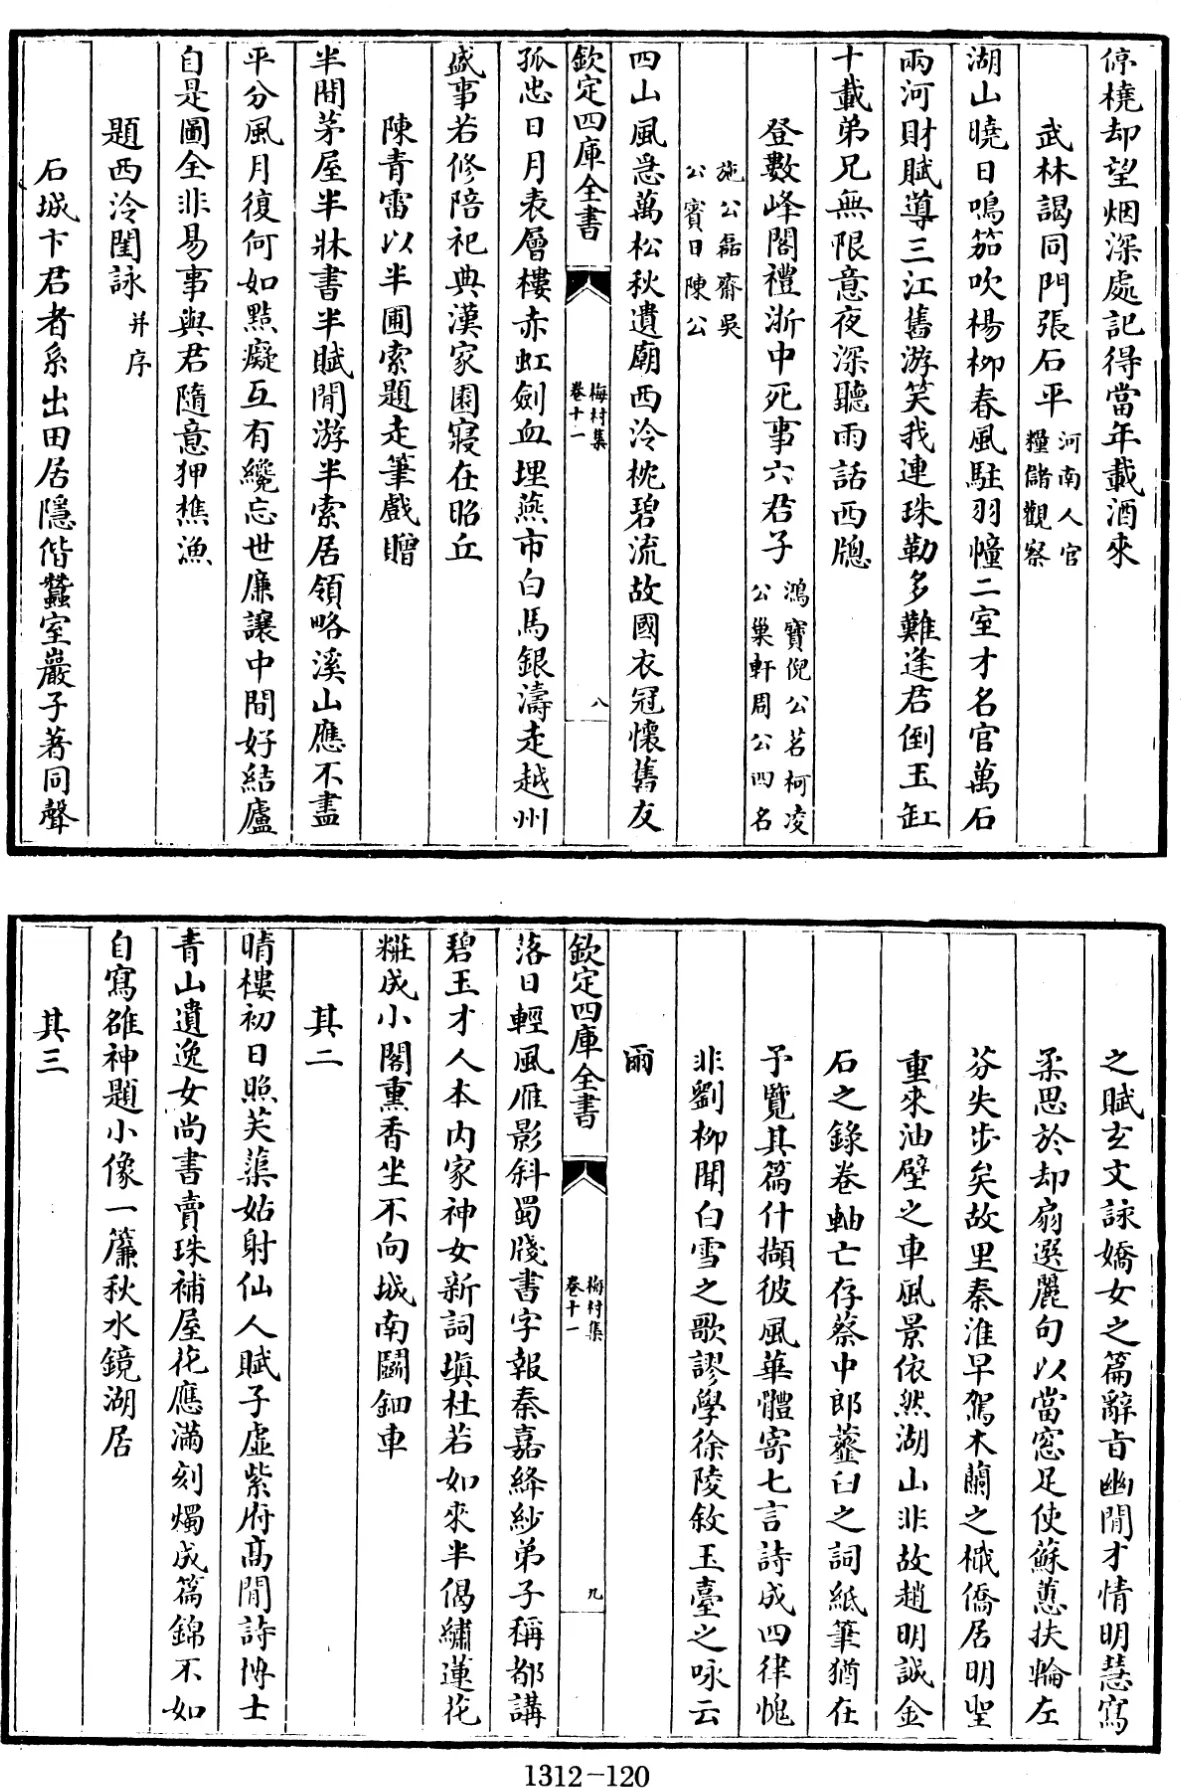 停橈却望烟深處記得當年載酒來
武林謁同門張石平河南人官
糧儲觀察
湖山曉日鳴笳吹楊柳春風駐羽幢二室才名官萬石
兩河財賦導三江舊游笑我連珠勒多難逢君倒玉缸
十載弟兄無限意夜深聽雨話西牕
登數峰閣禮浙中死事六君子鴻寶倪公茗柯凌
公巢軒周公四名
施公磊齋吳
公賓日陳公
四山風急萬松秋遺廟西泠枕碧流故國衣冠懷舊友
欽定四庫全書
梅村集
卷十一
八
孤忠日月表層樓赤虹劍血埋燕市白馬銀濤走越州
盛事若修陪祀典漢家園寢在昭丘
陳青雷以半圃索題走筆戲贈
半間茅屋半牀書半賦閒游半索居領略溪山應不盡
平分風月復何如點癡互有纔忘世廉讓中間好結廬
自是圖全非易事與君隨意狎樵漁
題西泠閨詠并序
石城卞君者系出田居隱偕蠶室巖子著同聲
之賦玄文詠嬌女之篇辭旨幽閒才情明慧寫
柔思於却扇選麗句以當窓足使蘇蕙扶輪左
芬失步矣故里秦淮早駕木蘭之檝僑居明聖
重來油壁之車風景依然湖山非故趙明誠金
石之錄卷軸亡存蔡中郎虀臼之詞紙筆猶在
予覽其篇什擷彼風華體寄七言詩成四律愧
非劉柳聞白雪之歌謬學徐陵敘玉臺之咏云
爾
欽定四庫全書
梅村集
卷十一
九
落日輕風雁影斜蜀牋書字報秦嘉絳紗弟子稱都講
碧玉才人本内家神女新詞填杜若如來半偈繡蓮花
糚成小閣熏香坐不向城南鬬鈿車
其二
晴樓初日照芙蕖姑射仙人賦子虛紫府高閒詩博士
青山遺逸女尚書賣珠補屋花應滿刻燭成篇錦不如
自寫雒神題小像一簾秋水鏡湖居
其三
1312-120